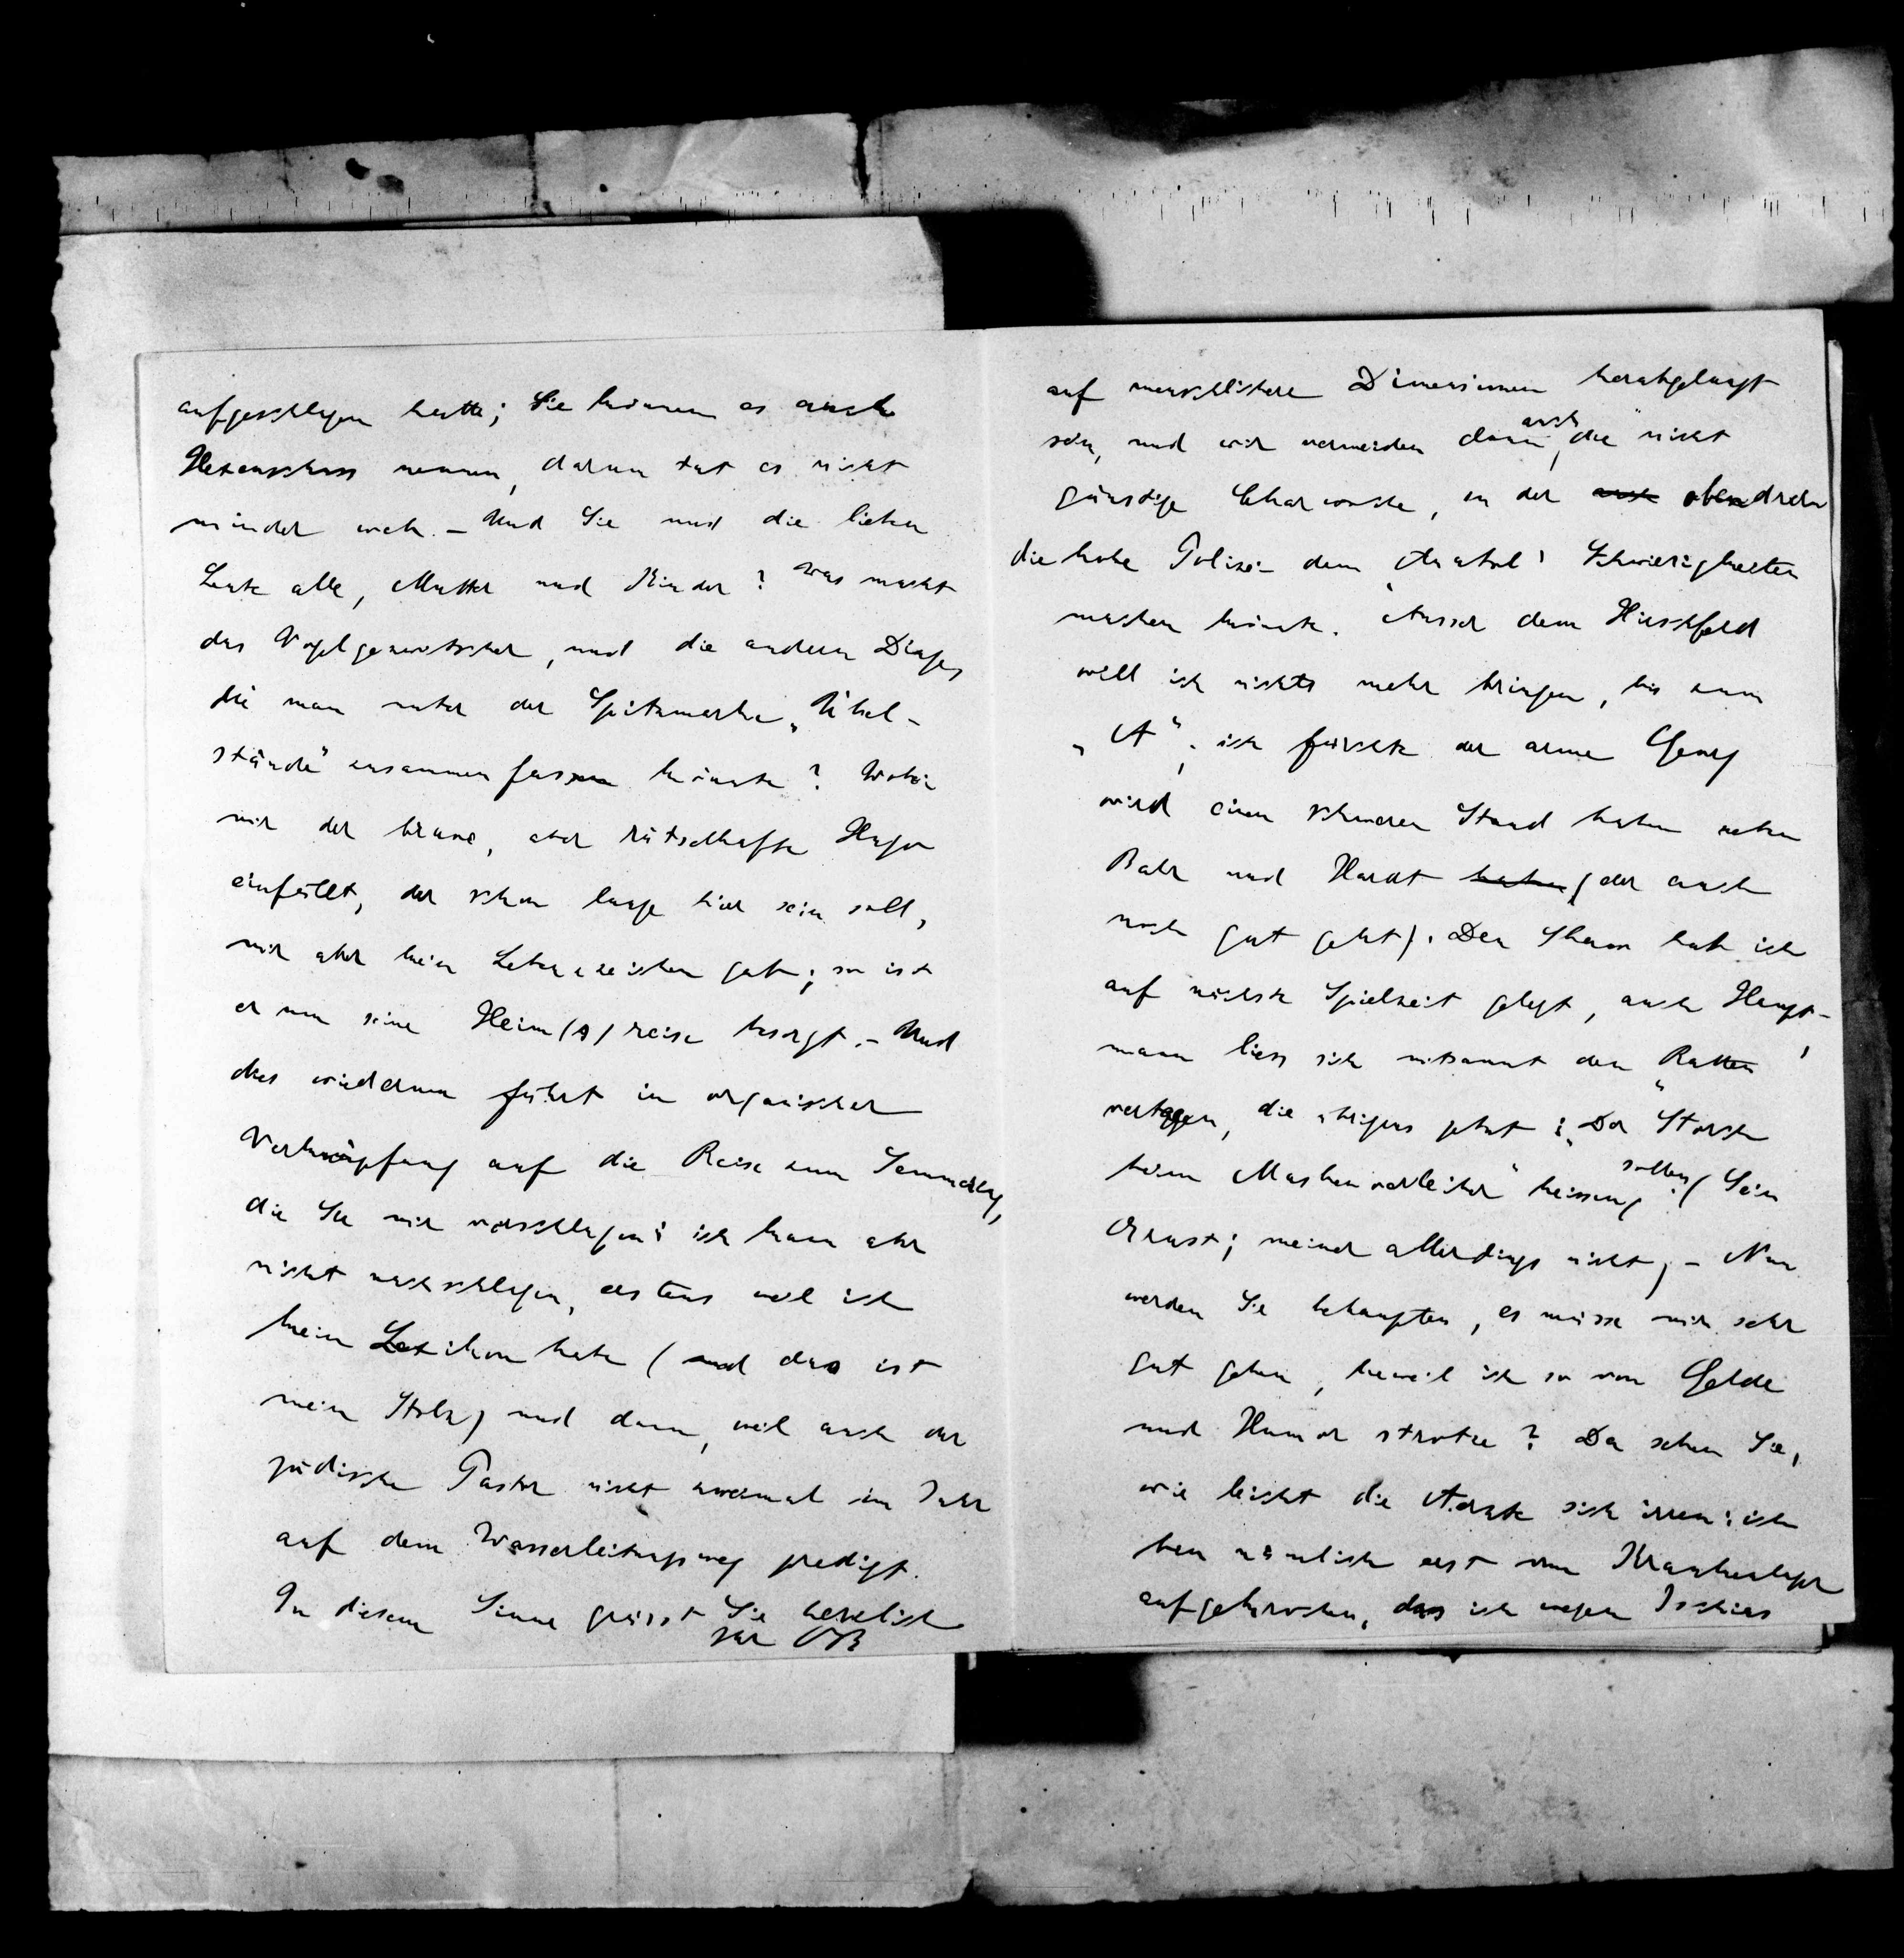 aufgeschlagen hatte; Sie können es auch
Hexenschuss nennen, darum tut es nicht
minder weh. – Und Sie und die lieben
Leute alle, Mutter und Kinder? Was macht
das Vogelgezwitscher, und die andern Dinge,
die man unter der Spitzmarke „Übel-
stände" zusammenfassen könnte? Wobei
mir der brave, aber rätselhafte Hugo
einfällt, der schon lange hier sein soll,
mir aber kein Lebenszeichen gab; so ist
er um seine Heim(A)reise besorgt. – Und
dies wiederum führt in organischer
Verknüpfung auf die Reise zum Semmering,
die Sie mir vorschlagen: ich kann aber
nicht nachschlagen, erstens weil ich
kein Lexikon habe (und das ist
mein Stolz) und dann, weil auch der
jüdische Pastor nicht zweimal im Jahr
auf dem Wasserleitungsweg predigt.
In diesem Sinne grüsst Sie herzlich
Ihr OB
auf menschlichere Dimensionen herabgelangt
sein, und wir vermeiden dann auch die „nicht
günstige Charwoche, in der auch obendrein
die hohe Polizei dem „Anatol' Schwierigkeiten
machen könnte. Ausser dem Hirschfeld
will ich nichts mehr bringen, bis zum
„A"; ich fürchte der arme Georg
wird einen schweren Stand haben neben
Bahr und Hardt haben (der auch
noch gut geht). Den Shaw hab ich
auf nächste Spielzeit gelegt, auch Haupt-
mann liess sich mitsamt den „Ratten'
vertagen, die übrigens jetzt: „Der Storch
beim Maskenverleiher" heissen sollen (Sein
Ernst; meiner allerdings nicht) – Nun
werden Sie behaupten, es müsse mir sehr
gut gehen, dieweil ich so von Gelde
und Humor strotze? Da sehen Sie,
wie leicht die Aerzte sich irren: ich
bin nämlich erst vom Krankenlager
aufgebrochen, das ich wegen Ischias